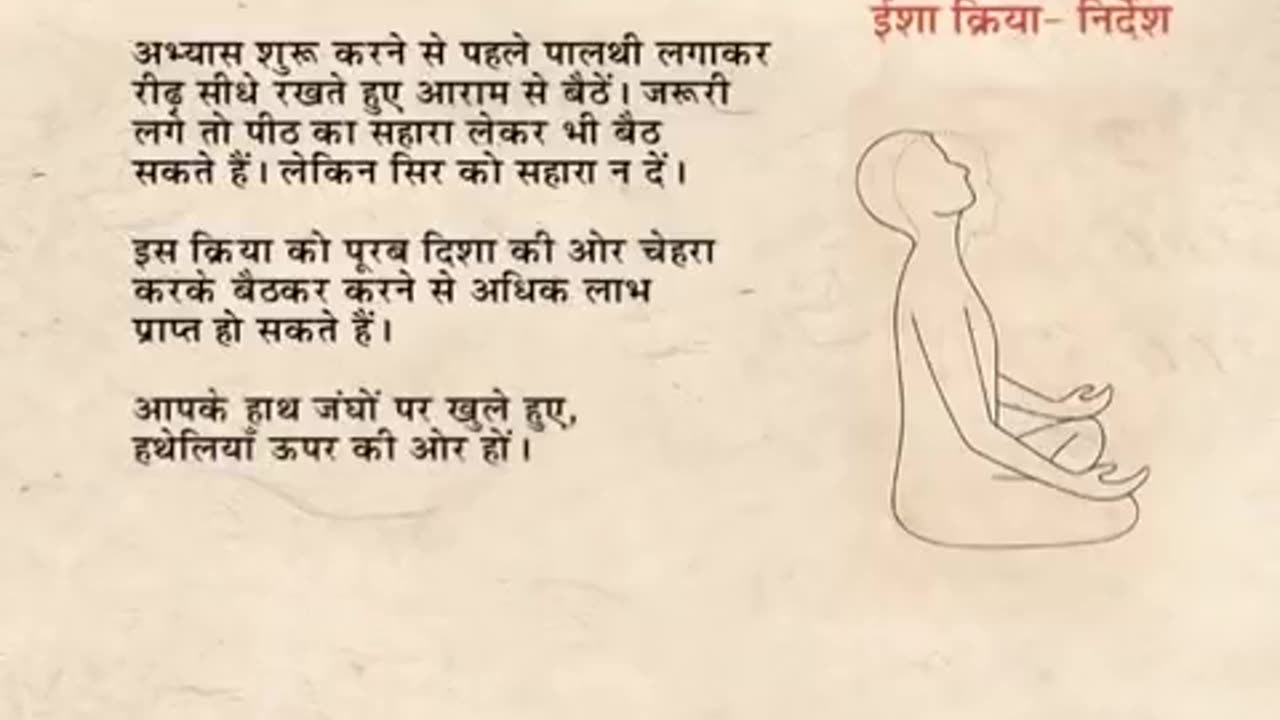 ईशा क्रिया- निर्देश
अभ्यास शुरू करने से पहले पालथी लगाकर
रीढ़ सीधे रखते हुए आराम से बैठें। जरूरी
लगे तो पीठ का सहारा लेकर भी बैठ
सकते हैं। लेकिन सिर को सहारा न दें।
इस क्रिया को पूरब दिशा की ओर चेहरा
करके बैठकर करने से अधिक लाभ
प्राप्त हो सकते हैं।
आपके हाथ जंघों पर खुले हुए,
हथेलियाँ ऊपर की ओर हों।